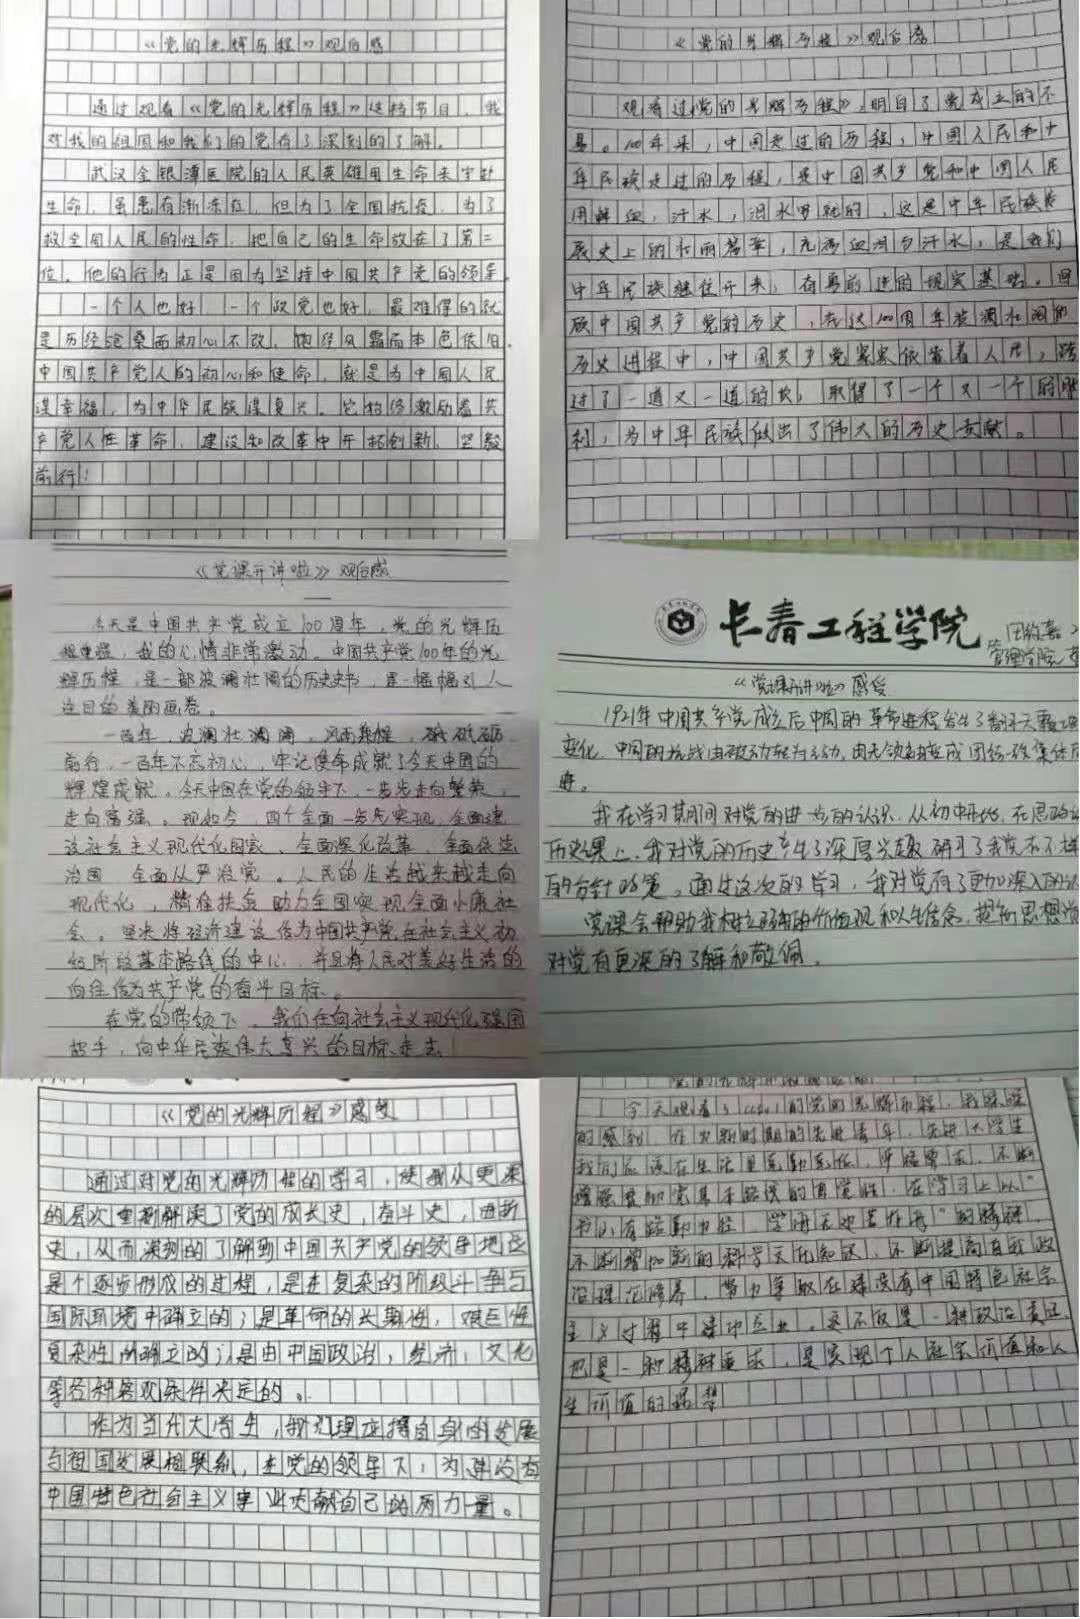 《党的光辉历程》观后感
通过观看《党的光辉历程》这档节目，我
对我的祖国和我们的党有了深刻的了解。
武汉金银潭医院的人民英雄用生命来守护
生命，虽患有渐冻症，但为了全国抗疫，为了
救全国人民的性命，把自己的生命放在了第二
位。他的行为正是因为坚持中国共产党的领导。
一个人也好，一个政党也好，最难得的就
是历经沧桑而初心不改，饱经风霜而本色依旧。
中国共产党人的初心和使命，就是为中国人民
谋幸福，为中华民族谋复兴。它始终激励着共
产党人在革命、建设和改革中开拓创新，坚毅
前行！
《党的光辉历程》观后感
观看过《党的光辉历程》，明白了党成立的不
易。100年来，中国走过的历程，中国人民和中
华民族走过的历程，是中国共产党和中国人民
用鲜血，汗水，泪水写就的，这是中华民族发
展史上的壮丽篇章，充满血泪与汗水，是我们
中华民族继往开来，奋勇前进的现实基础。回
顾中国共产党的历史，在这100周年波澜壮阔的
历史进程中，中国共产党紧紧依靠着人民，跨
过了一道又一道的坎，取得了一个又一个的胜
利，为中华民族做出了伟大的历史贡献。
《党课开讲啦》观后感
今天是中国共产党成立100周年，党的光辉历
程，我的心情非常激动。中国共产党100年的光
辉历程，是一部波澜壮阔的历史史书，是一幅幅引人
注目的美丽画卷。
一百年，波澜壮阔，风雨兼程，砥砺
前行，一百年不忘初心，牢记使命成就了今天中国的
辉煌成就。今天中国在党的领导下，一步步走向繁荣，
走向富强。现如今，四个全面一步步实现，全面建
设社会主义现代化国家、全面深化改革、全面依法
治国、全面从严治党。人民的生活越来越走向
现代化，精准扶贫助力全国实现全面小康社
会。坚决将经济建设作为中国共产党在社会主义初
级阶段基本路线的中心，并且将人民对美好生活的
向往作为共产党的奋斗目标。
在党的带领下，我们在向社会主义现代化强国
招手，向中华民族伟大复兴的目标走去！
长春工程学院
管理学院
《党课开讲啦》感受
1921年中国共产党成立后中国的革命进程发生了翻天覆地
变化，中国的抗战由被动转为主动，由无领袖变成团结的集体
进。
我在学习期间对党的进一步的认识，从初中开始，在思政
历史课上，我对党的历史产生了深厚兴趣，研习了我党在不样
的方针政策。通过这次的学习，我对党有了更加深入的认
党课会帮助我树立正确的价值观和人生信念，提高思想觉
对党有更深的了解和敬佩。
《党的光辉历程》感受
通过对党的光辉历程的学习，使我从更深
的层次重新解读了党的成长史，奋斗史，进取
史，从而深刻的了解到中国共产党的领导地位
是个逐步形成的过程，是在复杂的阶级斗争与
国际环境中确立的；是革命的长期性，艰巨性
复杂性所确立的；是由中国政治，经济，文化
等各种客观条件决定的。
作为当代大学生，我们理应将自身的发展
与祖国发展相联系，在党的领导下，为建设有
中国特色社会主义事业贡献自己的力量。
今天观看了的党的光辉历程，我深深
的感到，作为新时期的先进青年、先进大学生
我们应该在生活里克勤克俭，严格要求，不断
增强贯彻党基本路线的自觉性，在学习上以“
书山有路勤为径，学海无涯苦作舟”的精神，
不断增加新的科学文化知识，不断提高自我政
治理论修养，努力争取在建设有中国特色社会
主义过程中建功立业。这不仅是一种政治责任，
也是一种精神要求，是实现个人社会价值和人
生价值的